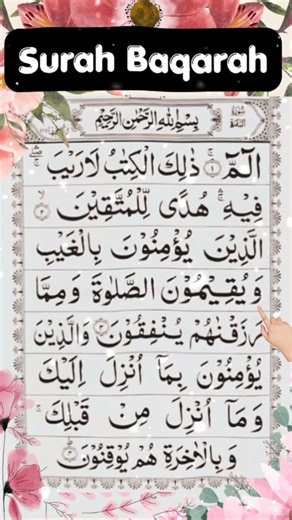 Surah Baqarah
بِسْمِ اللّٰهِ الرَّحْمٰنِ الرَّحِيْمِ
الٓمّٓ ۚ﴿۱﴾ ذٰلِكَ الْكِتٰبُ لَا رَيْبَ
فِيْهِ ۛۚ هُدًى لِّلْمُتَّقِيْنَ ﴿۲﴾
الَّذِيْنَ يُؤْمِنُوْنَ بِالْغَيْبِ
وَيُقِيْمُوْنَ الصَّلٰوةَ وَمِمَّا
رَزَقْنٰهُمْ يُنْفِقُوْنَ ﴿۳﴾ وَالَّذِيْنَ
يُؤْمِنُوْنَ بِمَآ اُنْزِلَ اِلَيْكَ
وَمَآ اُنْزِلَ مِنْ قَبْلِكَ ۚ
وَبِالْاٰخِرَةِ هُمْ يُوْقِنُوْنَ ﴿۴﴾